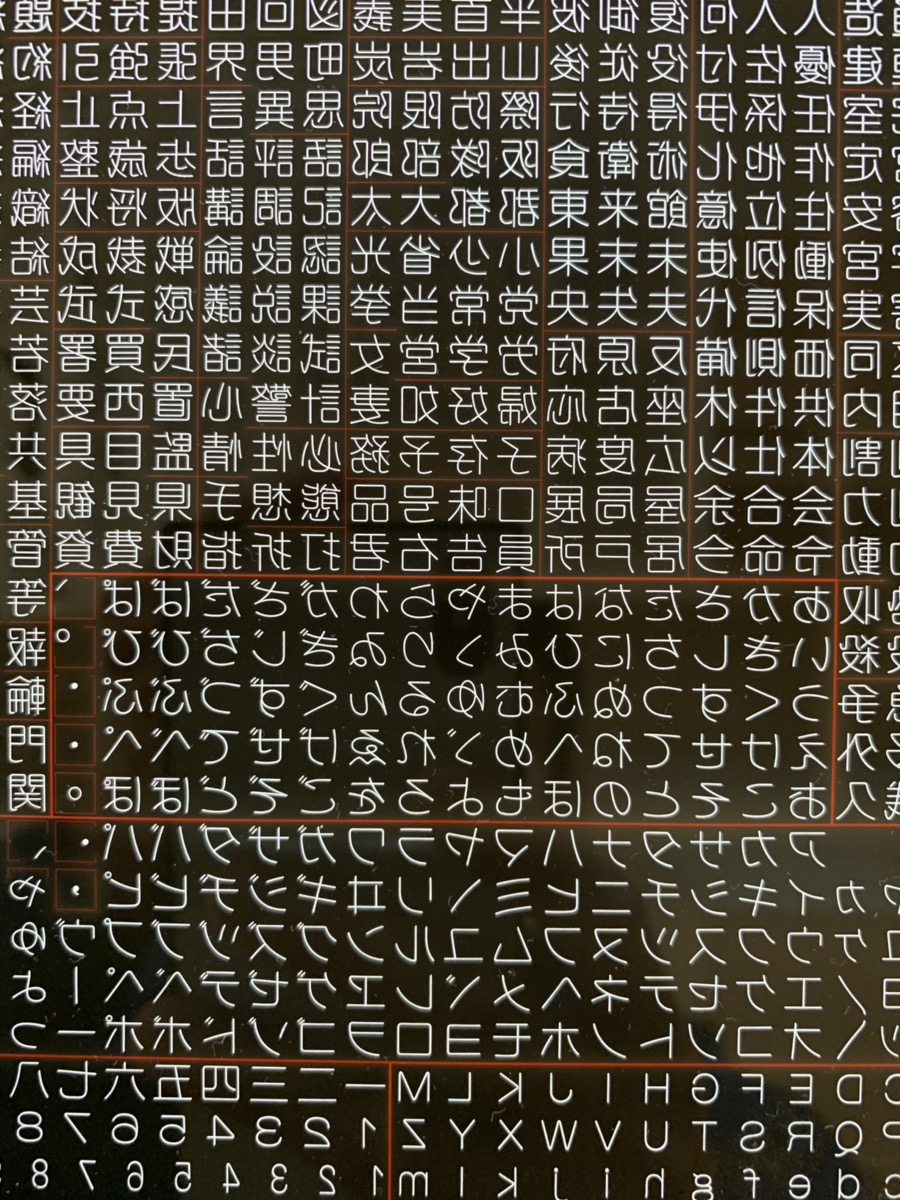 造人入何復御彼半首美義図回田提持技題
建優佐付役従後山出岩炭町男界張強引約
室任係伊得待行際防限院思異言上点止経
定作他化術衛食阪隊部郎語評話歩歳整編
安住位億館来東郡都大太記調講版将状織
宮働例使未末果小少省光認設論戦裁成結
実保信代夫失央党常当挙課説議感式武芸
同価側備反原府労学営女試談諸民買署若
内供件休座店応婦好如妻計警心置西要落
割体仕以広度病子存予務必性情監目具共
力会合余屋局展口味号品態想手県見観基
動令命今居戸所員告右君打折指財費資管
収あかさたなはまやらわがざだばぱ、等
殺いきしちにひみゝりゐぎじぢびぴ゜報
争うくすつぬふむゆるんぐずづぶぷ・輪
外えけせてねへめゞれゑげぜでべぺ・門
久おこそとのほもよろをごぞどぼぽ。関
アカサタナハマヤラワガザダバパ・、
ヵイキシチニヒミヽリヰギジヂビピ・ゃ
ヶウクスツヌフムユルングズヅブプヴゅ
エケセテネヘメヾレヱゲゼデベペーょ
オコソトノホモヨロヲゴゾドボポーっ
CDEFGHIJKLM一二三四五六七八
PQRSTUVWXYZ12345678
cdefghijklm12345678